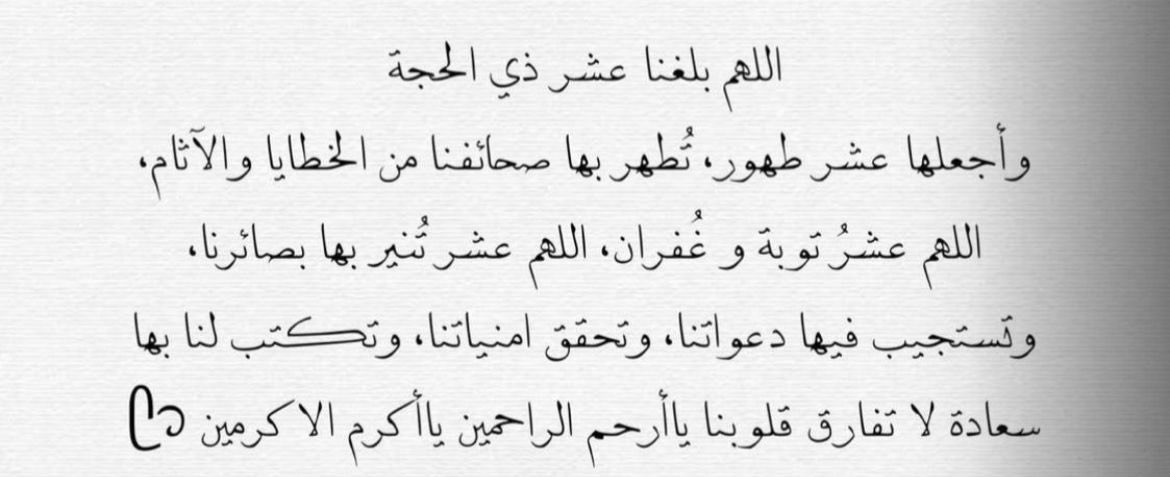 اللهم بلغنا عشر ذي الحجة
وأجعلها عشر طهور، تُطهر بها صحائفنا من الخطايا والآثام،
اللهم عشرُ توبة و غُفران، اللهم عشر تُنير بها بصائرنا،
وتستجيب فيها دعواتنا، وتحقق امنياتنا، وتكتب لنا بها
سعادة لا تفارق قلوبنا ياأرحم الراحمين ياأكرم الاكرمين